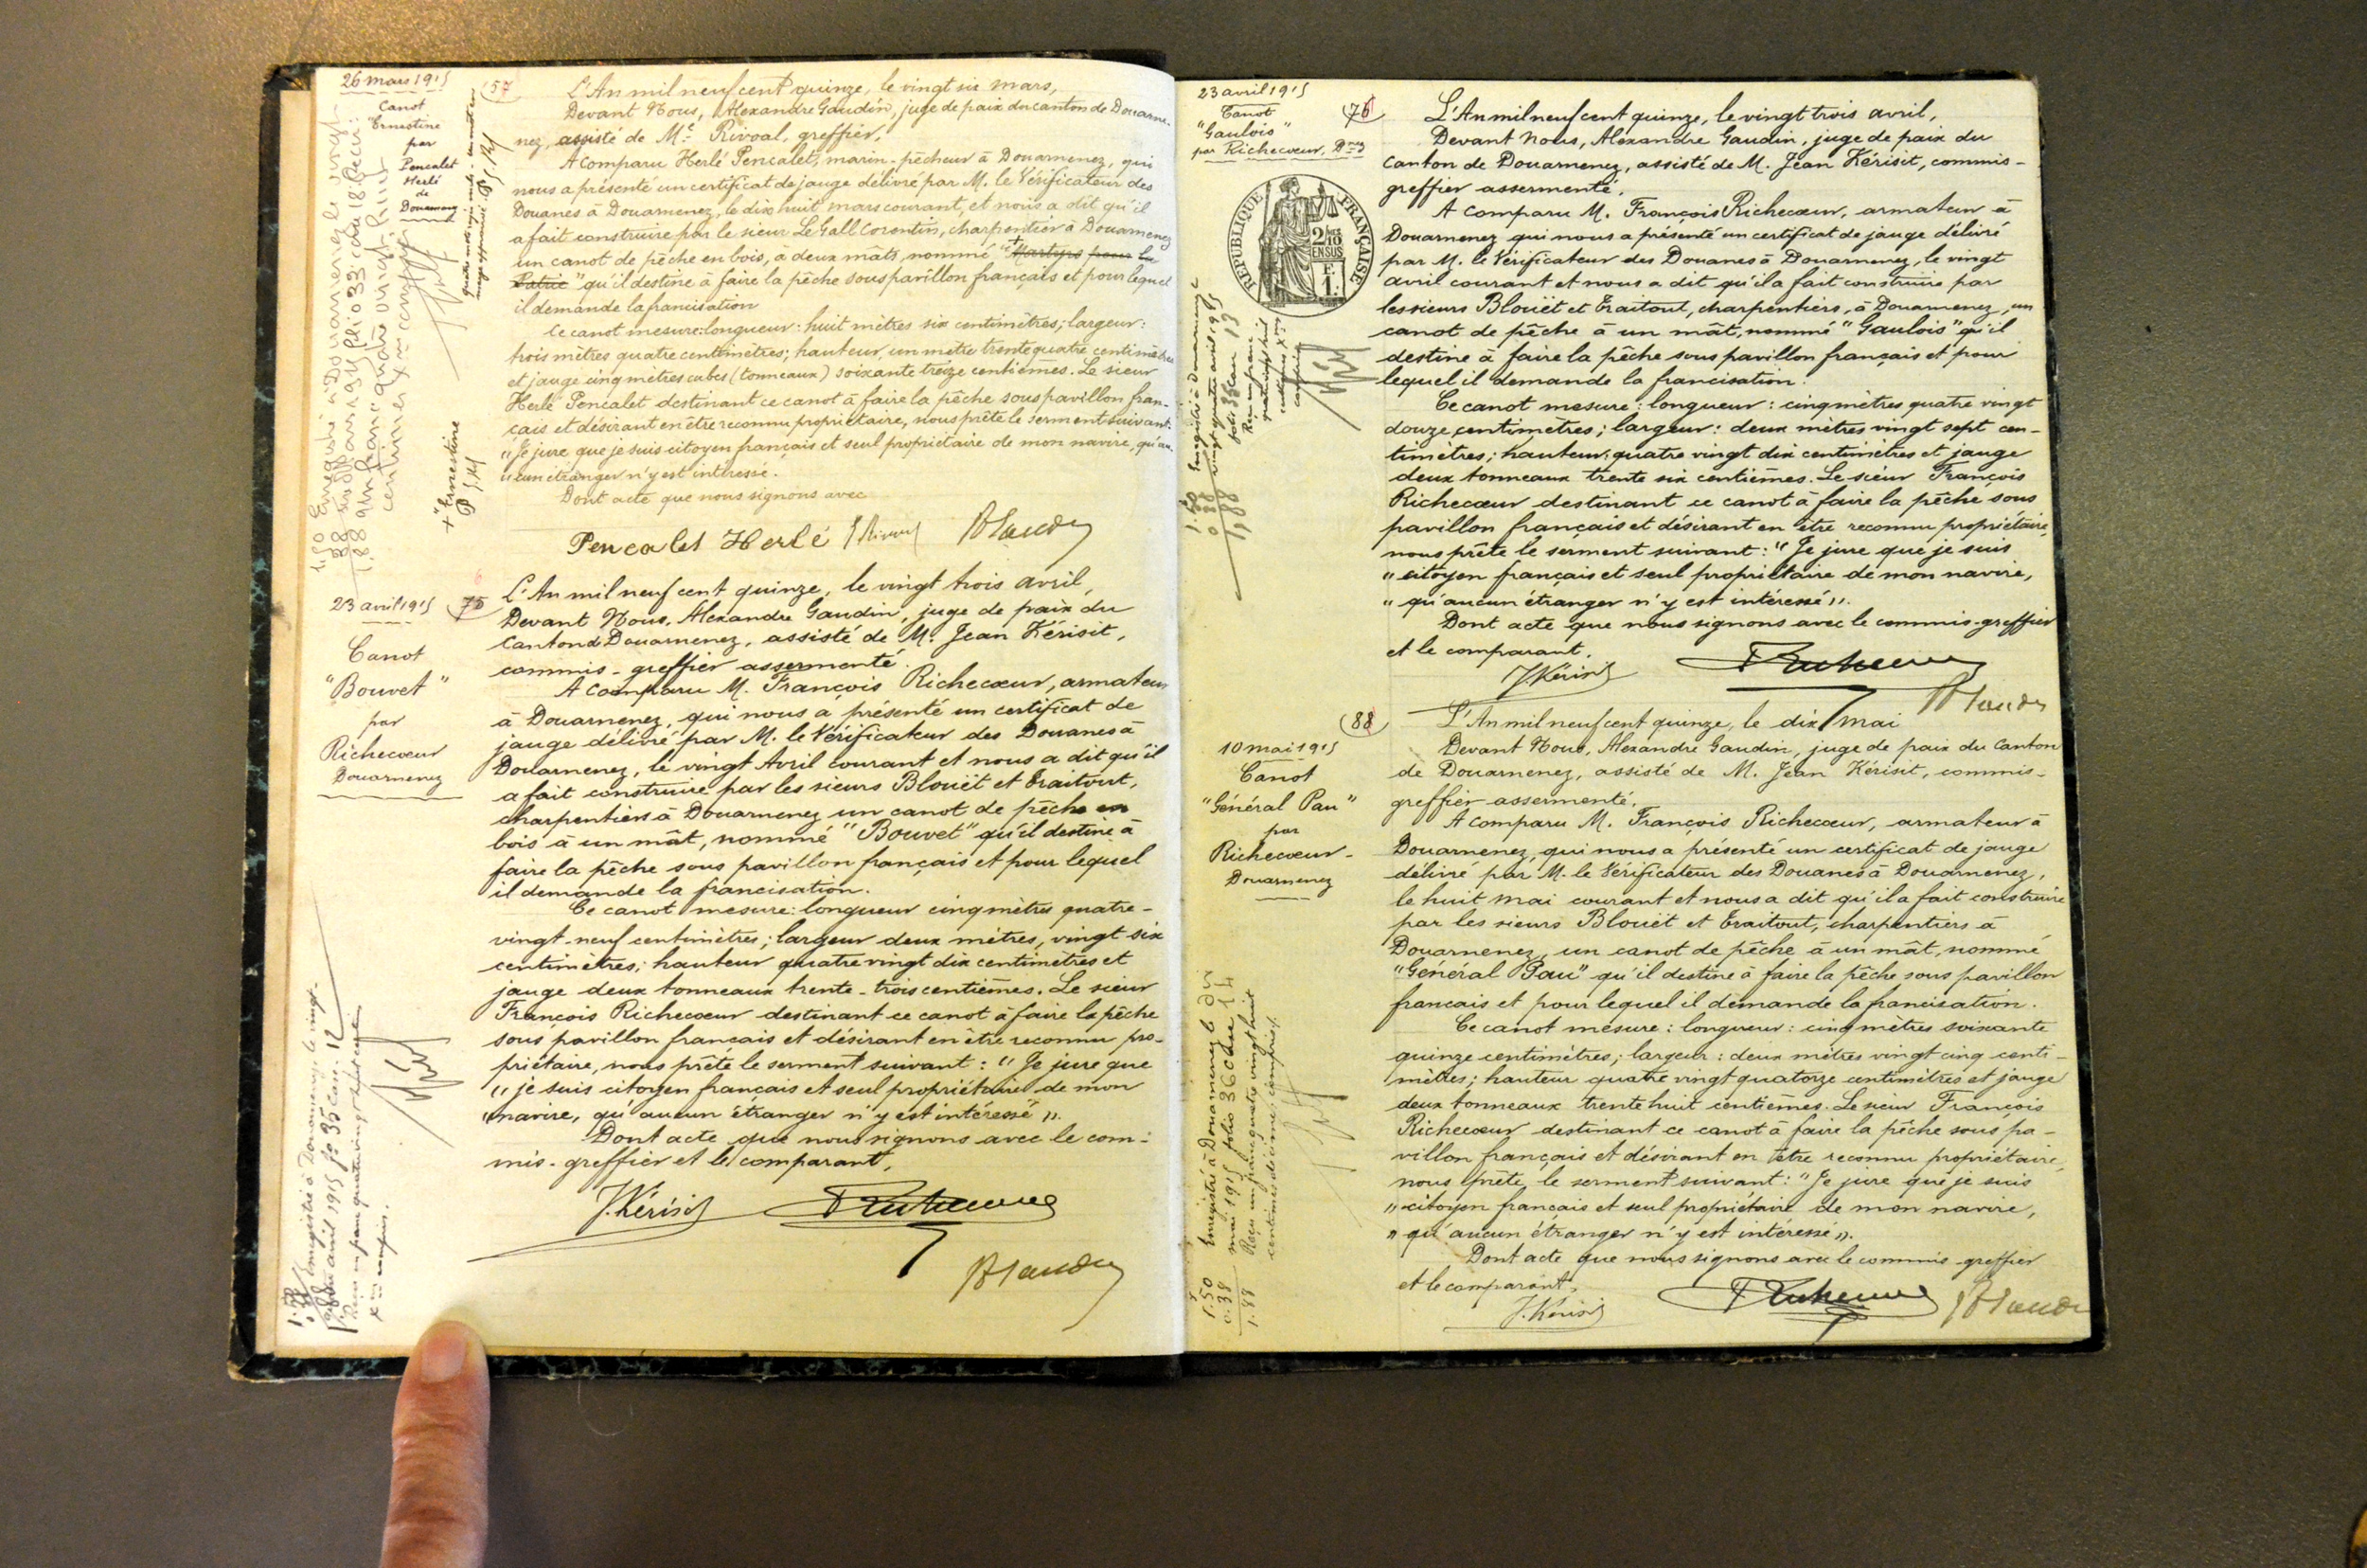 26 mars 1915
Canot
"Ernestine
par
Pencalet
Herlé
de
Douarnenez
57
L'An mil neuf cent quinze, le vingt six mars,
Devant Nous, Alexandre Gaudin, juge de paix du canton de Douarne-
nez, assisté de Me Rivoal, greffier,
A comparu Herlé Pencalet, marin-pêcheur à Douarnenez, qui
nous a présenté un certificat de jauge délivré par M. le Vérificateur des
Douanes à Douarnenez, le dix huit mars courant, et nous a dit qu'il
a fait construire par le sieur Le Gall Corentin, charpentier à Douarnenez
un canot de pêche en bois, à deux mâts, nommé "+ Martyrs pour la
Patrie" qu'il destine à faire la pêche sous pavillon français et pour lequel
il demande la francisation
Ce canot mesure: longueur: huit mètres six centimètres; largeur:
trois mètres quatre centimètres; hauteur, un mètre trente quatre centimètres
et jauge cinq mètres cubes (tonneaux) soixante treize centièmes. Le sieur
Herlé Pencalet destinant ce canot à faire la pêche sous pavillon fran-
çais et désirant en être reconnu propriétaire, nous prête le serment suivant:
"Je jure que je suis citoyen français et seul propriétaire de mon navire, qu'au-
"cun étranger n'y est intéressé.
Dont acte que nous signons avec
Pencalet Herlé
+ "Ernestine
23 avril 1915
Canot
"Bouvet"
par
Richecœur
Douarnenez
75
L'An mil neuf cent quinze, le vingt trois avril,
Devant Nous, Alexandre Gaudin, juge de paix du
Canton de Douarnenez, assisté de M. Jean Kérisit,
commis-greffier assermenté.
A comparu M. François Richecœur, armateur
à Douarnenez, qui nous a présenté un certificat de
jauge délivré par M. le Vérificateur des Douanes à
Douarnenez, le vingt Avril courant et nous a dit qu'il
a fait construire par les sieurs Blouët et Traitout,
charpentiers à Douarnenez un canot de pêche en
bois à un mât, nommé "Bouvet" qu'il destine à
faire la pêche sous pavillon français et pour lequel
il demande la francisation.
Ce canot mesure: longueur cinq mètres quatre-
vingt-neuf centimètres; largeur deux mètres, vingt six
centimètres; hauteur quatre vingt dix centimètres et
jauge deux tonneaux trente-trois centièmes. Le sieur
François Richecœur destinant ce canot à faire la pêche
sous pavillon français et désirant en être reconnu pro-
priétaire, nous prête le serment suivant: "Je jure que
"je suis citoyen français et seul propriétaire de mon
"navire, qu'aucun étranger n'y est intéressé".
Dont acte que nous signons avec le com-
mis-greffier et le comparant,
J. Kérisit
23 avril 1915
Canot
"Gaulois"
par Richecœur, Dnez
76
RÉPUBLIQUE FRANÇAISE
2/10
EN SUS
L'An mil neuf cent quinze, le vingt trois avril,
Devant Nous, Alexandre Gaudin, juge de paix du
Canton de Douarnenez, assisté de M. Jean Kérisit, commis-
greffier assermenté.
A comparu M. François Richecœur, armateur à
Douarnenez qui nous a présenté un certificat de jauge délivré
par M. le Vérificateur des Douanes à Douarnenez, le vingt
avril courant et nous a dit qu'il a fait construire par
les sieurs Blouët et Traitout, charpentiers, à Douarnenez, un
canot de pêche à un mât, nommé "Gaulois" qu'il
destine à faire la pêche sous pavillon français et pour
lequel il demande la francisation.
Ce canot mesure: longueur: cinq mètres quatre vingt
douze centimètres; largeur: deux mètres vingt sept cen-
timètres; hauteur: quatre vingt dix centimètres et jauge
deux tonneaux trente six centièmes. Le sieur François
Richecœur destinant ce canot à faire la pêche sous
pavillon français et désirant en être reconnu propriétaire,
nous prête le serment suivant: "Je jure que je suis
"citoyen français et seul propriétaire de mon navire,
"qu'aucun étranger n'y est intéressé".
Dont acte que nous signons avec le commis-greffier
et le comparant.
J. Kérisit
88
10 mai 1915
Canot
"Général Pau"
par
Richecœur-
Douarnenez
L'An mil neuf cent quinze, le dix mai
Devant Nous, Alexandre Gaudin, juge de paix du Canton
de Douarnenez, assisté de M. Jean Kérisit, commis-
greffier assermenté.
A comparu M. François Richecœur, armateur à
Douarnenez, qui nous a présenté un certificat de jauge
délivré par M. le Vérificateur des Douanes à Douarnenez,
le huit mai courant et nous a dit qu'il a fait construire
par les sieurs Blouët et Traitout, charpentiers à
Douarnenez, un canot de pêche à un mât, nommé
"Général Pau" qu'il destine à faire la pêche sous pavillon
français et pour lequel il demande la francisation.
Ce canot mesure: longueur: cinq mètres soixante
quinze centimètres; largeur: deux mètres vingt cinq centi-
mètres; hauteur quatre vingt quatorze centimètres et jauge
deux tonneaux trente huit centièmes. Le sieur François
Richecœur destinant ce canot à faire la pêche sous pa-
villon français et désirant en être reconnu propriétaire,
nous prête le serment suivant: "Je jure que je suis
"citoyen français et seul propriétaire de mon navire,
"qu'aucun étranger n'y est intéressé".
Dont acte que nous signons avec le commis-greffier
et le comparant,
J. Kérisit
Enregistré à Douarnenez le dix
mai 1915 folio 36 case 14
Reçu un franc quatre vingt huit
centimes décimes compris.
1.50
0.38
1.88